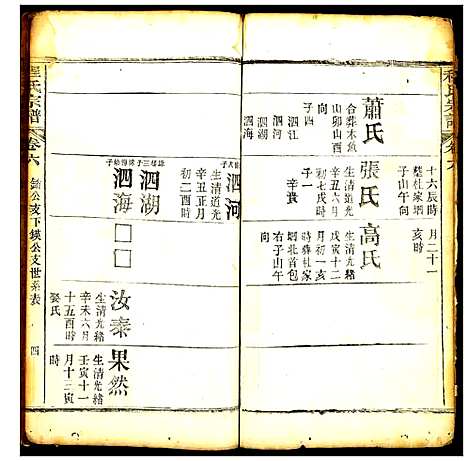 十六辰時
葬杜家垇
子山午向
月二十一
亥時
蕭氏
合葬木魚
山卯山酉
向
子四
泗江
泗河
泗湖
泗海
張氏
生清道光
辛丑六月
初七戌時
子一
辛貴
高氏
生清光緒
戊寅十二
月初一亥
時葬杜家
垇北首包
右子山午
向
泗河
生清道光
辛丑正月
初二酉時
泗湖
泗海
□
□
汝泰
生清光緒
辛未六月
十五酉時
娶氏
果然
生清光緒
壬寅十一
月十三寅
時
程氏宗譜
卷六
公支下鍈公支世系表
四